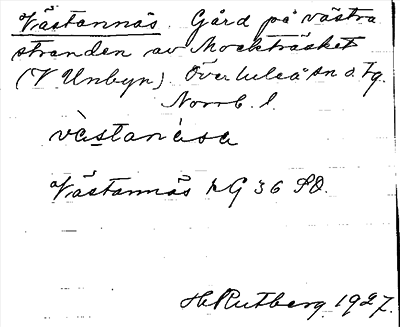 Västannäs. Gård på västra
stranden av Mockträsket
(V. Unbyn). Överluleå sn o. tg.
Norrb. l.
vàstanása
Västannäs hG 36 SO.
H. Rutberg 1927.